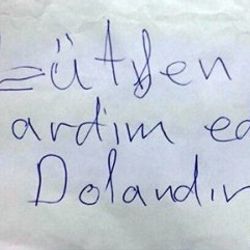 Lütfen
ardım ed
Dolandır